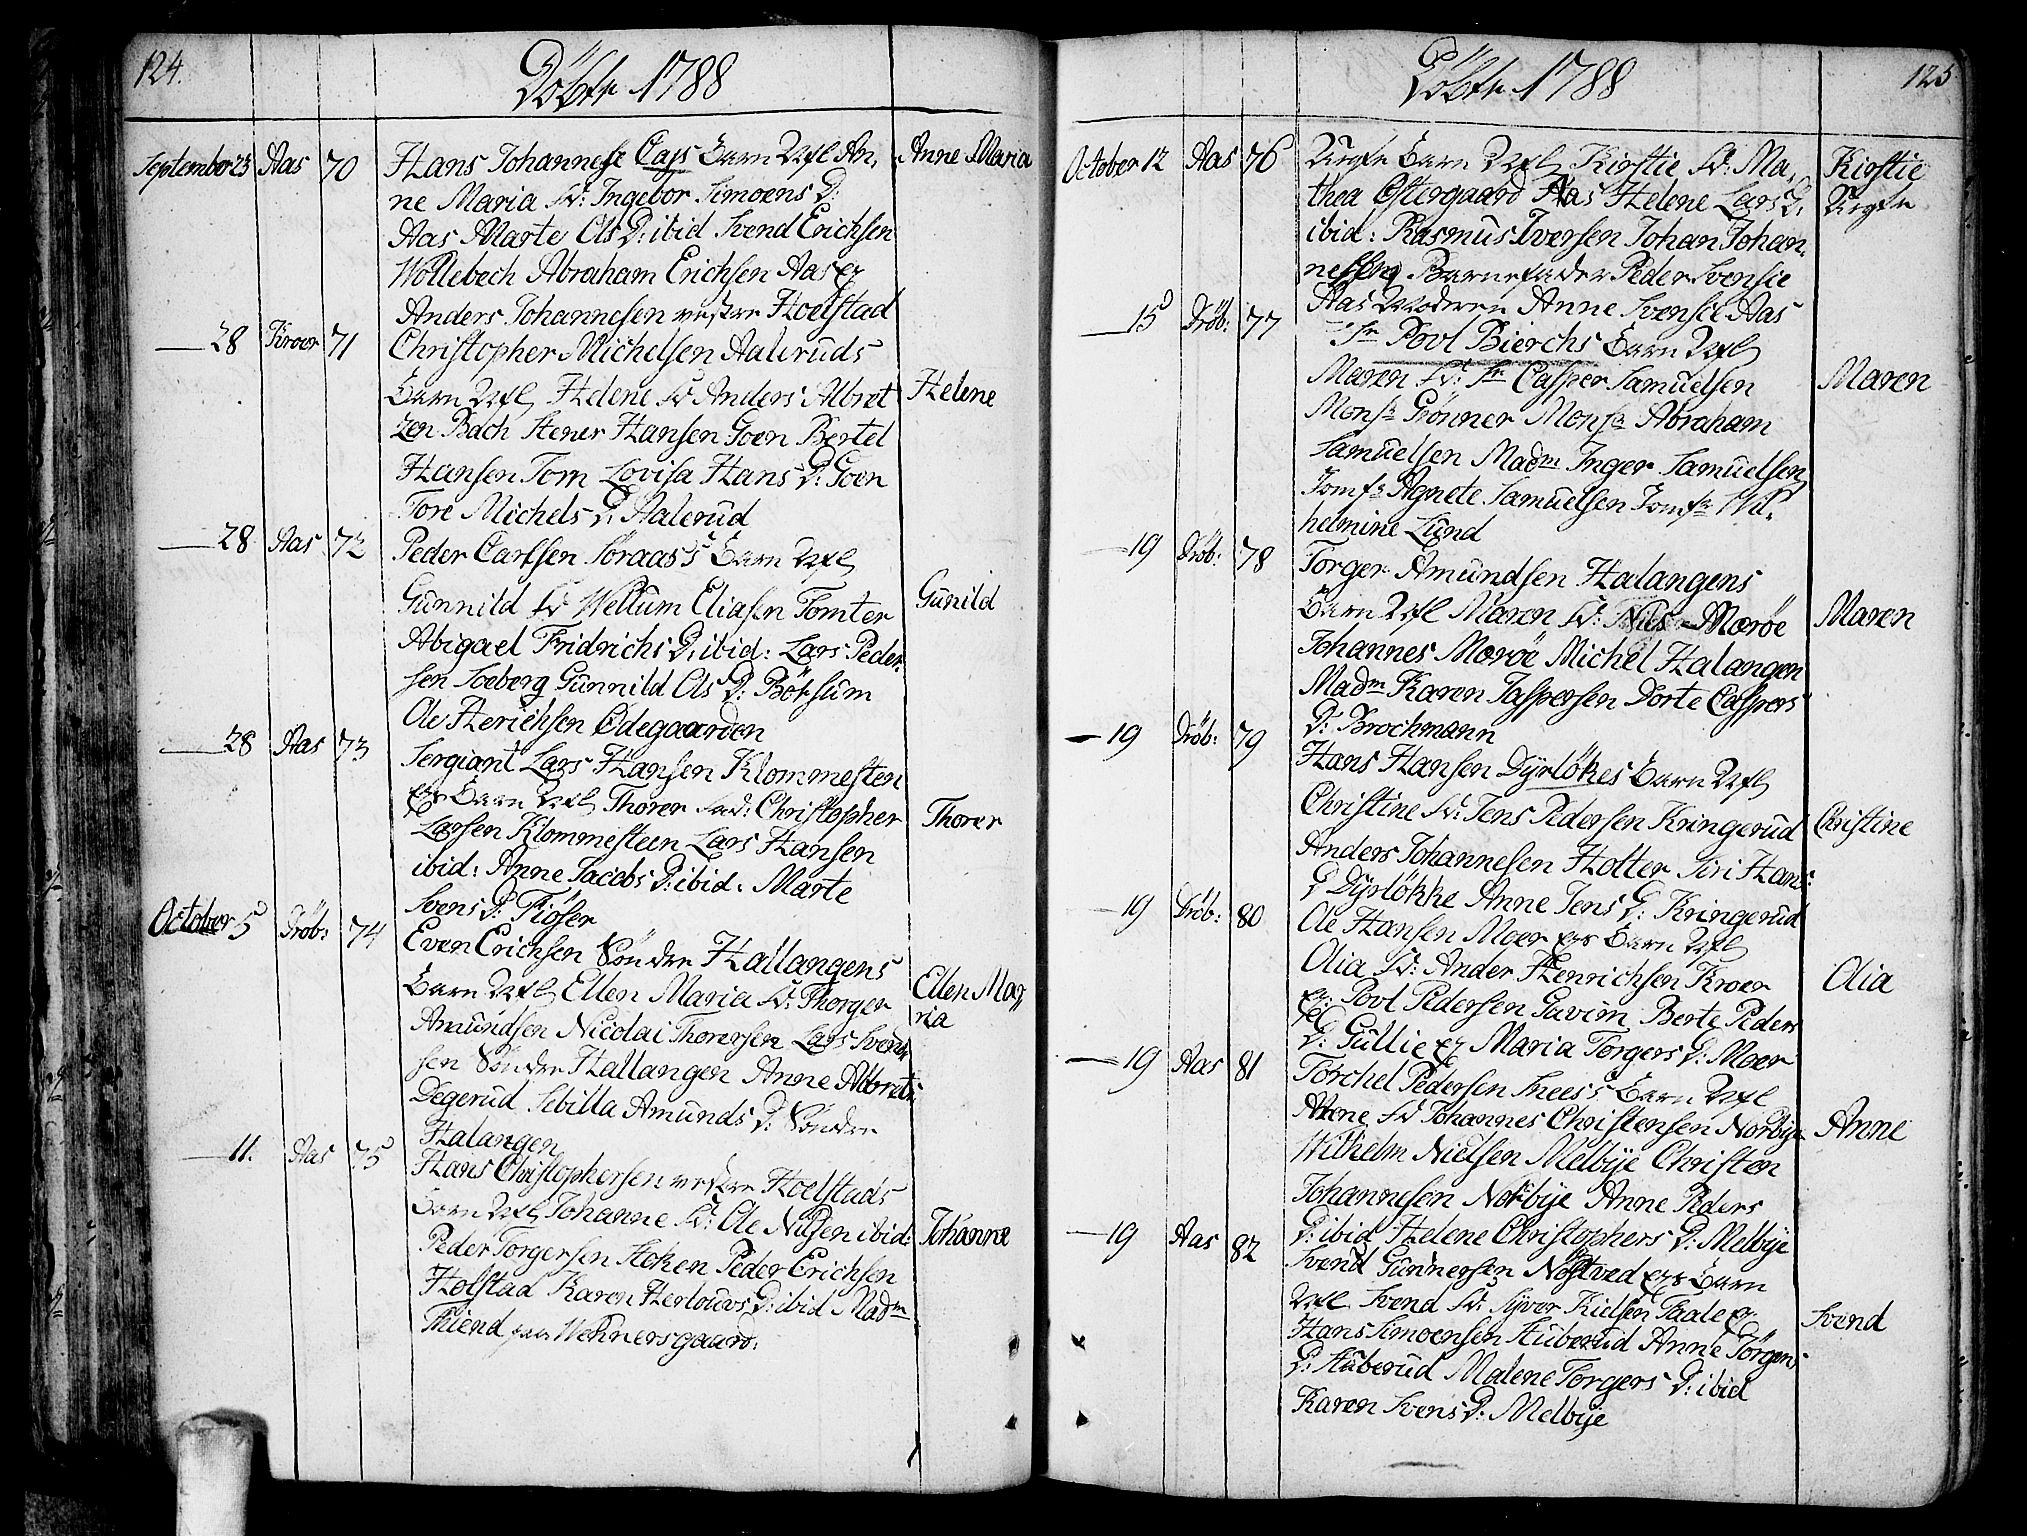 124.
Döbte 1788
September 23 Aas 70 Hans Johannesse Cajs Barn Kfl An, Anne Maria
ne Maria Fd: Ingebor Simoens D:
Aas Marte Ols D: ibid Svend Erichsen
Wollebech Abraham Erichsen Aas og
Anders Johannesen vestre Hoelstad
28 Kroer 71 Christopher Michelsen Aaleruds
Barn Kfl Helene Fd Anders Albret Helene
zen Bach Stener Hansen Goen Bertel
Hansen Torn Lovisa Hans D: Goen
Tore Michels D: Aalerud
28 Aas 72 Peder Carlsen Söraas's Barn Kfl
Gunnild Fd Wellum Eliasen Tomter Gunild
Abigael Fridrichs D: ibid: Lars Peder
sen Soeberg Gunnild Ols D: Bötsum
Ole Herichsen Ødegaarden
28 Aas 73 Sergiant Lars Hansen Klommesten
Barn Kfl Thorer Fad: Christopher Thorer
Larsen Klommesteen Lars Hansen
ibid: Anne Jacobs D: ibid: Marte
Svens D: Fiöser
October 5 Dröb: 74 Even Erichsen Söndre Hallangens
Barn Kfl Ellen Maria Fd: Thorger Ellen Ma
Amundsen Nicolai Thorersen Lars Svend ria
sen Söndre Hallangen Anne Albrets
Degerud Sebilla Amunds D: Söndre
Halangen
11. Aas 75 Hans Christophersen vestre Hoelstads
Barn Kfl Johanne Fd: Ole Nilsen ibid: Johanne
Peder Torgersen Holen Peder Erichsen
Holstad Karen Herlouvs D: ibid Madm
Thiend paa Wehnersgaard:
125
Döbte 1788
October 12 Aas 76 Uegte Barn Kfl Kirstie Fd: Ma, Kirstie
thea Ostergaard Aas Helene Lars D: Uegte
ibid: Rasmus Iversen Johan Johan,
nessen Barnefader Peder Svensie
Aas Moderen Anne Svensie Aas
15 Dröb: 77 Sr Povl Bierchs Barn Kfl
Maren Fd: Sr Casper Samuelsen Maren
Monsr Grönner Monsr Abraham
Samuelsen Madm Inger Samuelsen
Jomfr Agnete Samuelsen Jomfr Wil,
helmine Lund
19 Dröb: 78 Torger Amundsen Halangens
Barn Kfl Maren Fd: Nils Moröe Maren
Johannes Moröe Michel Halangen
Madm Karen Jaspersen Dorte Caspers
D: Brochmann
19 Dröb: 79 Hans Hansen Dyrlökes Barn Kfl
Christine Fd: Jens Pedersen Kringerud Christine
Anders Johannesen Holter Siri Hans:
D Dyrlökke Anne Jens D: Kringerud
19 Dröb: 80 Ole Hansen Moer Barn Kfl
Olia Fd: Ander Henrichsen Kroer Olia
og: Povl Pedersen Gavim Berte Peders
D: Gullie og Maria Torgers D: Moer
19 Aas 81 Torchel Pedersen Snees's Barn Kfl
Anne Fd Johannes Christensen Norbye Anne
Wilhelm Nielsen Melbye Christen
Johannesen Norbye Anne Peders
D: ibid Helene Christophers D: Melbye
19 Aas 82 Svend Gunnersen Nöstved Barn
Kfl Svend Fd: Syver Kielsen Taale og Svend
Hans Simoensen Huberud Anne Törgens
D: Huberud Malene Torgers D: ibid
Karen Svens D: Melbye